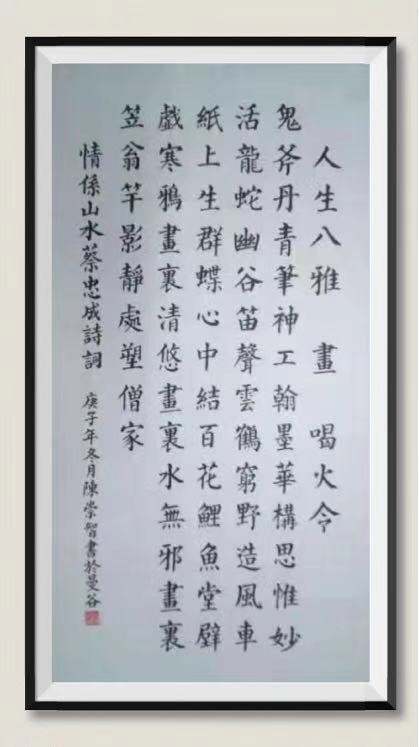 人生八雅 畫 喝火令
鬼斧丹青筆神工翰墨華構思惟妙
活龍蛇幽谷笛聲雲鶴窮野造風車
紙上生群蝶心中結百花鯉魚堂壁
戲寒鴉畫裏清悠畫裏水無邪畫裏
笠翁竿影靜處塑僧家
情係山水蔡忠成詩詞 庚子年冬月陳崇智書於曼谷